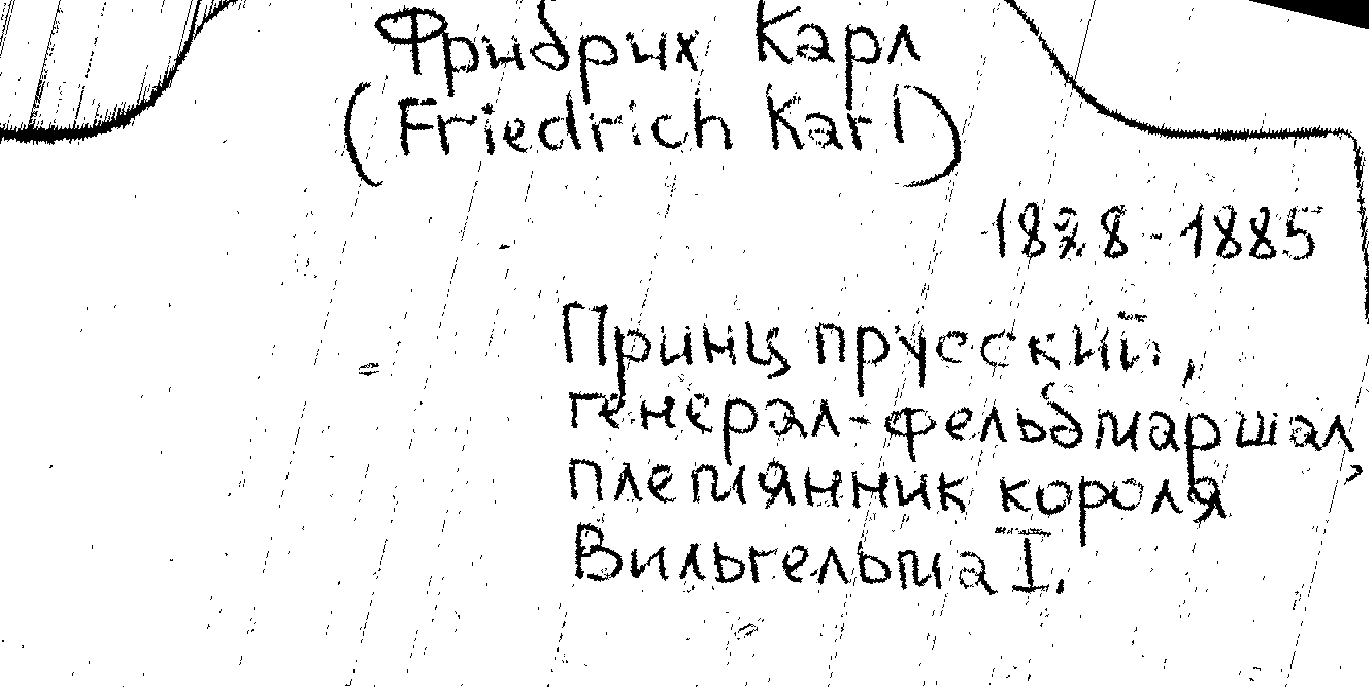 Фридрих Карл
(Friedrich Karl)
1828-1885
Принц прусский,
генерал-фельдмаршал,
племянник короля
Вильгельма I.